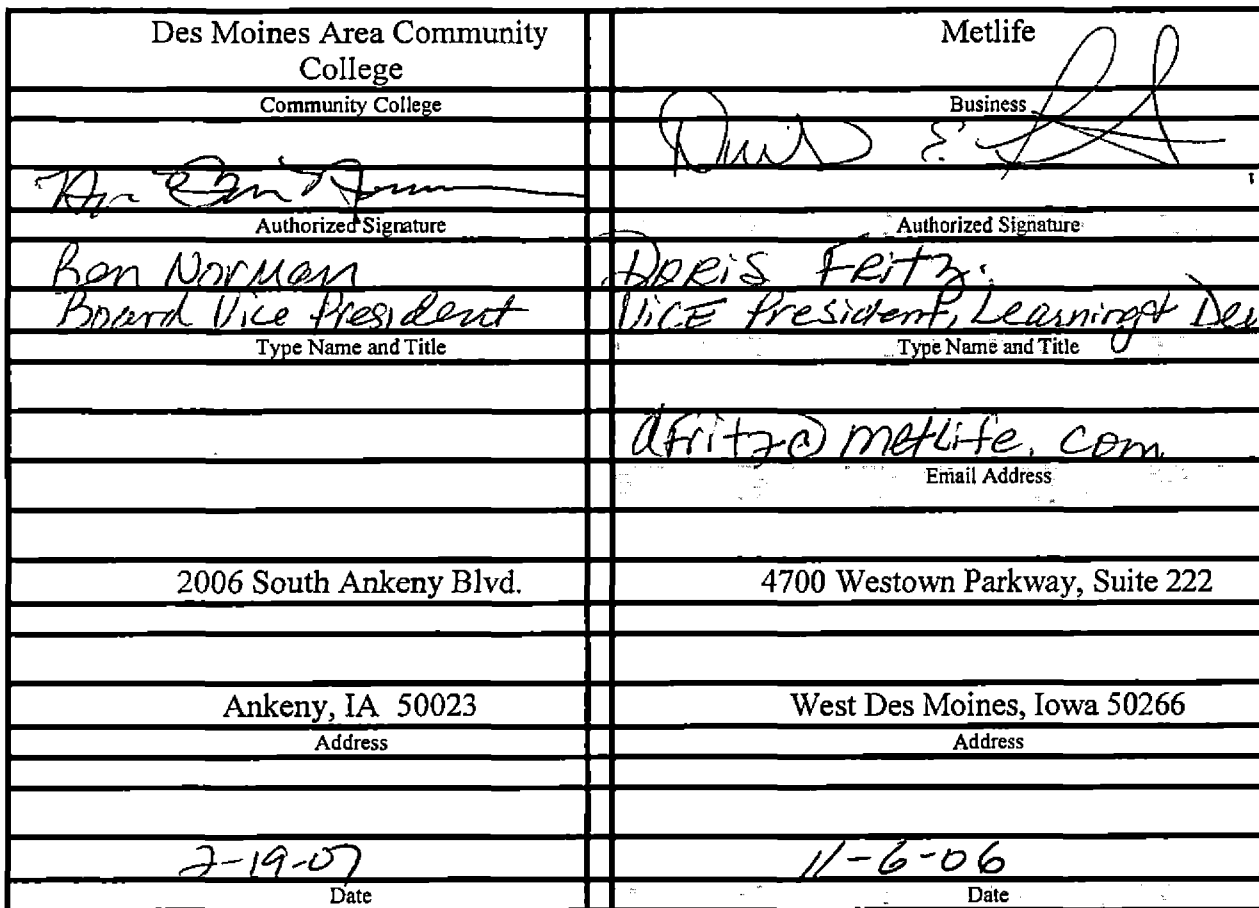 Des Moines Area Community
College
Community College
Authorized Signature
Ron Norman
Board Vice President
Type Name and Title
2006 South Ankeny Blvd.
Ankeny, IA 50023
Address
2-19-07
Date
Metlife
Business
Authorized Signature
Doris Fritz
Vice President, Learning + Dev
Type Name and Title
dfritz@metlife.com
Email Address
4700 Westown Parkway, Suite 222
West Des Moines, Iowa 50266
Address
11-6-06
Date